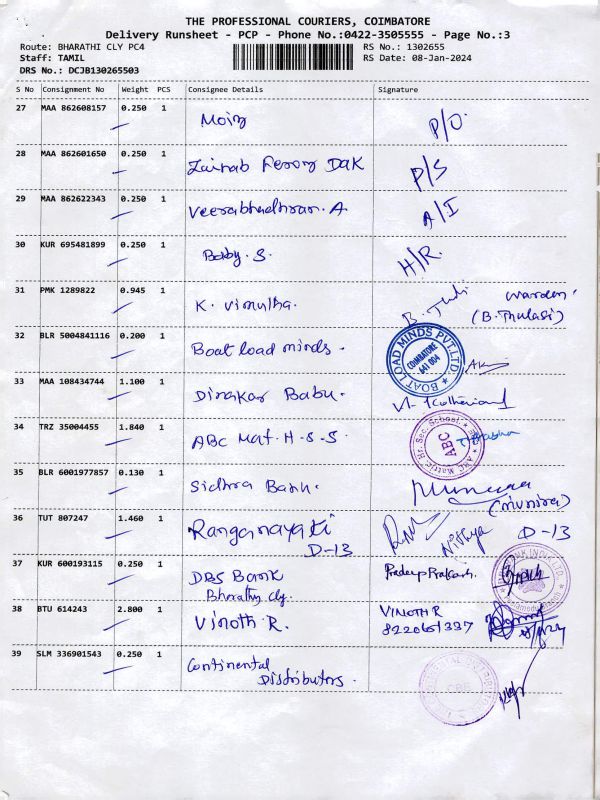 THE PROFESSIONAL COURIERS, COIMBATORE
Delivery Runsheet - PCP - Phone No.:0422-3505555 - Page No.:3
Route: BHARATHI CLY PC4 RS No.: 1302655
Staff: TAMIL RS Date: 08-Jan-2024
DRS No.: DCJB130265503
S No Consignment No Weight PCS Consignee Details Signature
27 MAA 862608157 0.250 1 Moiz P/O
28 MAA 862601650 0.250 1 Zainab Feroz DAK P/S
29 MAA 862622343 0.250 1 Veerabhadhran. A A/I
30 KUR 695481899 0.250 1 Baby. S. H/R.
31 PMK 1289822 0.945 1 K. Vimultha. Warden.
(B. Thulasi)
32 BLR 5004841116 0.200 1 Boat load minds. BOAT LOAD MINDS PVT. LTD. COIMBATORE 641 004
33 MAA 108434744 1.100 1 Dinakar Babu.
34 TRZ 35004455 1.840 1 ABC Mat. H-S-S ABC
35 BLR 6001977857 0.130 1 Sidhra Banu.
(Munira)
36 TUT 807247 1.460 1 Ranganayaki Nithya D-13
D-13
37 KUR 600193115 0.250 1 DBS Bank Pradeep Prakash.
Bharathy cly.
38 BTU 614243 2.800 1 Vinoth R. VINOTH R
39 SLM 336901543 0.250 1 Continental
Distributors.